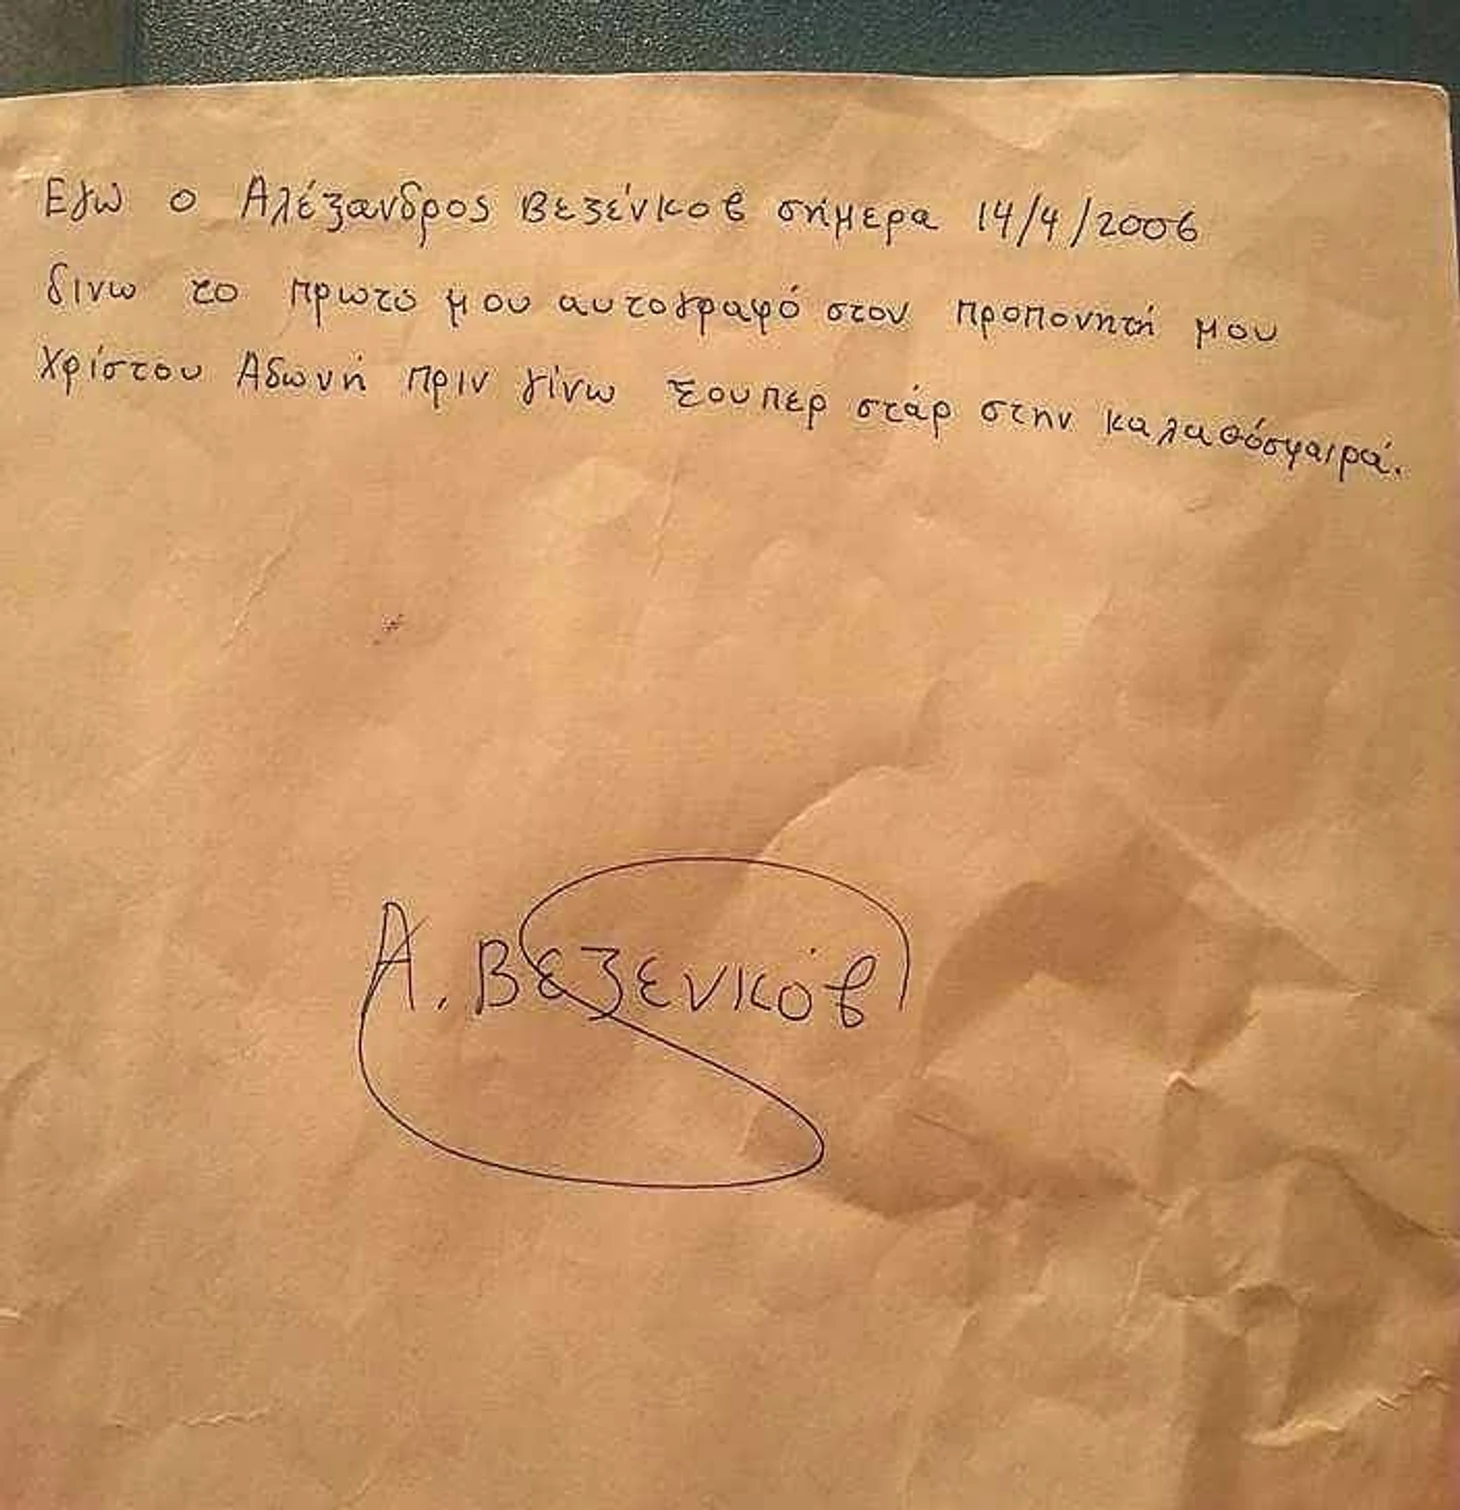 Εγώ ο Αλέξανδρος Βεζένκοβ σήμερα 14/4/2006
δινω το πρωτό μου αυτογραφό στον προπονητή μου
Χρίστου Αδωνή πριν γίνω Σουπερ στάρ στην καλαθόσφαιρά.
Α. Βεζενκόβ